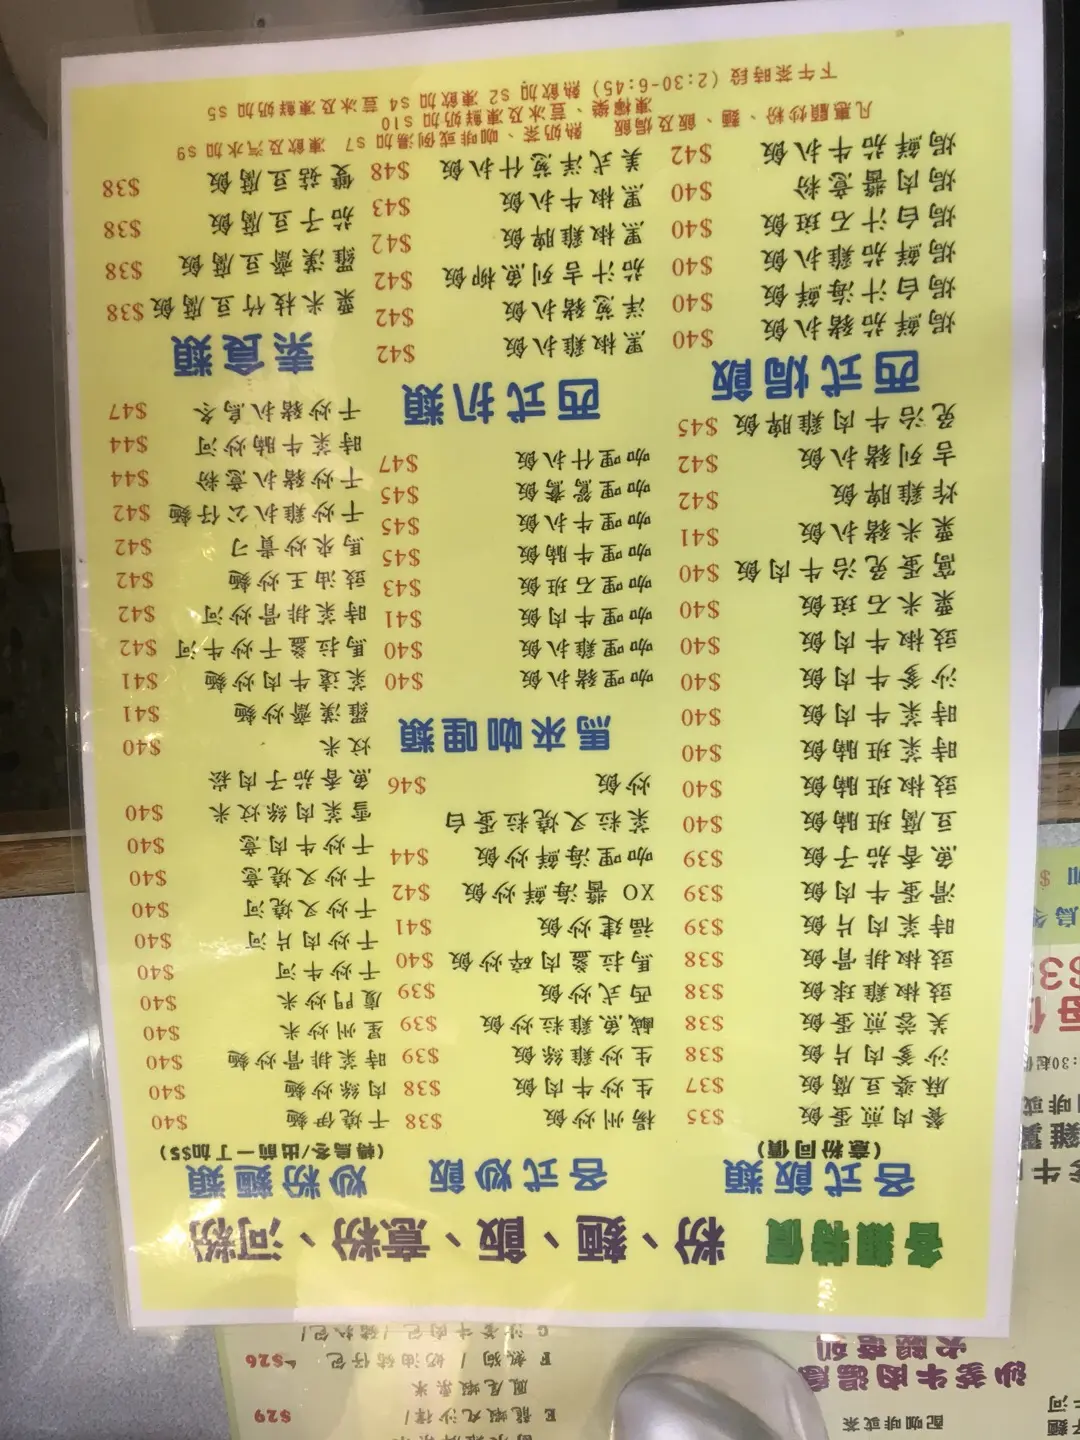 各類特價 粉、麵、飯、意粉、河粉
各式飯類
(意粉同價)
餐肉煎蛋飯 $35
麻婆豆腐飯 $37
沙爹肉片飯 $38
芙蓉煎蛋飯 $38
豉椒雞球飯 $38
豉椒排骨飯 $38
時菜肉片飯 $39
滑蛋牛肉飯 $39
魚香茄子飯 $39
豆腐班腩飯 $40
豉椒班腩飯 $40
時菜班腩飯 $40
時菜牛肉飯 $40
沙爹牛肉飯 $40
豉椒牛肉飯 $40
粟米石斑飯 $40
窩蛋免治牛肉飯 $40
粟米豬扒飯 $41
炸雞脾飯 $42
吉列豬扒飯 $42
免治牛肉雞脾飯 $45
西式焗飯
焗鮮茄豬扒飯 $40
焗白汁海鮮飯 $40
焗鮮茄雞扒飯 $40
焗白汁石斑飯 $40
焗肉醬意粉 $40
焗鮮茄牛扒飯 $42
各式炒飯
楊州炒飯 $38
生炒牛肉飯 $38
生炒雞絲飯 $39
鹹魚雞粒炒飯 $39
西式炒飯 $39
馬拉盞肉碎炒飯 $40
福建炒飯 $41
XO 醬海鮮炒飯 $42
咖哩海鮮炒飯 $44
菜粒叉燒粒蛋白
炒飯 $46
馬來咖哩類
咖哩豬扒飯 $40
咖哩雞扒飯 $40
咖哩牛肉飯 $41
咖哩石班飯 $43
咖哩牛腩飯 $45
咖哩牛扒飯 $45
咖哩鴛鴦飯 $45
咖哩什扒飯 $47
西式扒類
黑椒雞扒飯 $42
洋葱豬扒飯 $42
茄汁吉列魚柳飯 $42
黑椒雞脾飯 $42
黑椒牛扒飯 $43
美式洋葱什扒飯 $48
炒粉麵類
(轉烏冬/出前一丁加$5)
干燒伊麵 $40
肉絲炒麵 $40
時菜排骨炒麵 $40
星州炒米 $40
廈門炒米 $40
干炒牛河 $40
干炒肉片河 $40
干炒叉燒河 $40
干炒叉燒意 $40
干炒牛肉意 $40
雪菜肉絲炆米 $40
魚香茄子肉崧
炆米 $40
羅漢齋炒麵 $41
菜遠牛肉炒麵 $41
馬拉盞干炒牛河 $42
時菜排骨炒河 $42
豉油王炒麵 $42
馬來炒貴刁 $42
干炒雞扒公仔麵 $42
干炒豬扒意粉 $44
時菜牛腩炒河 $44
干炒豬扒烏冬 $47
素食類
粟米枝竹豆腐飯 $38
羅漢齋豆腐飯 $38
茄子豆腐飯 $38
雙菇豆腐飯 $38
凡惠顧炒粉、麵、飯及焗飯 熱奶茶、咖啡或例湯加 $7 凍飲及汽水加 $9
凍檸樂、荳冰及凍鮮奶加 $10
下午茶時段 (2:30-6:45) 熱飲加 $2 凍飲加 $4 荳冰及凍鮮奶加 $5
沙爹牛肉湯意
配咖啡或茶
E 龍蝦丸沙律/ $29
鳳尾蝦素米
F 熱狗 / 奶油豬仔包 $26
G 沙爹牛肉包/豬扒包/